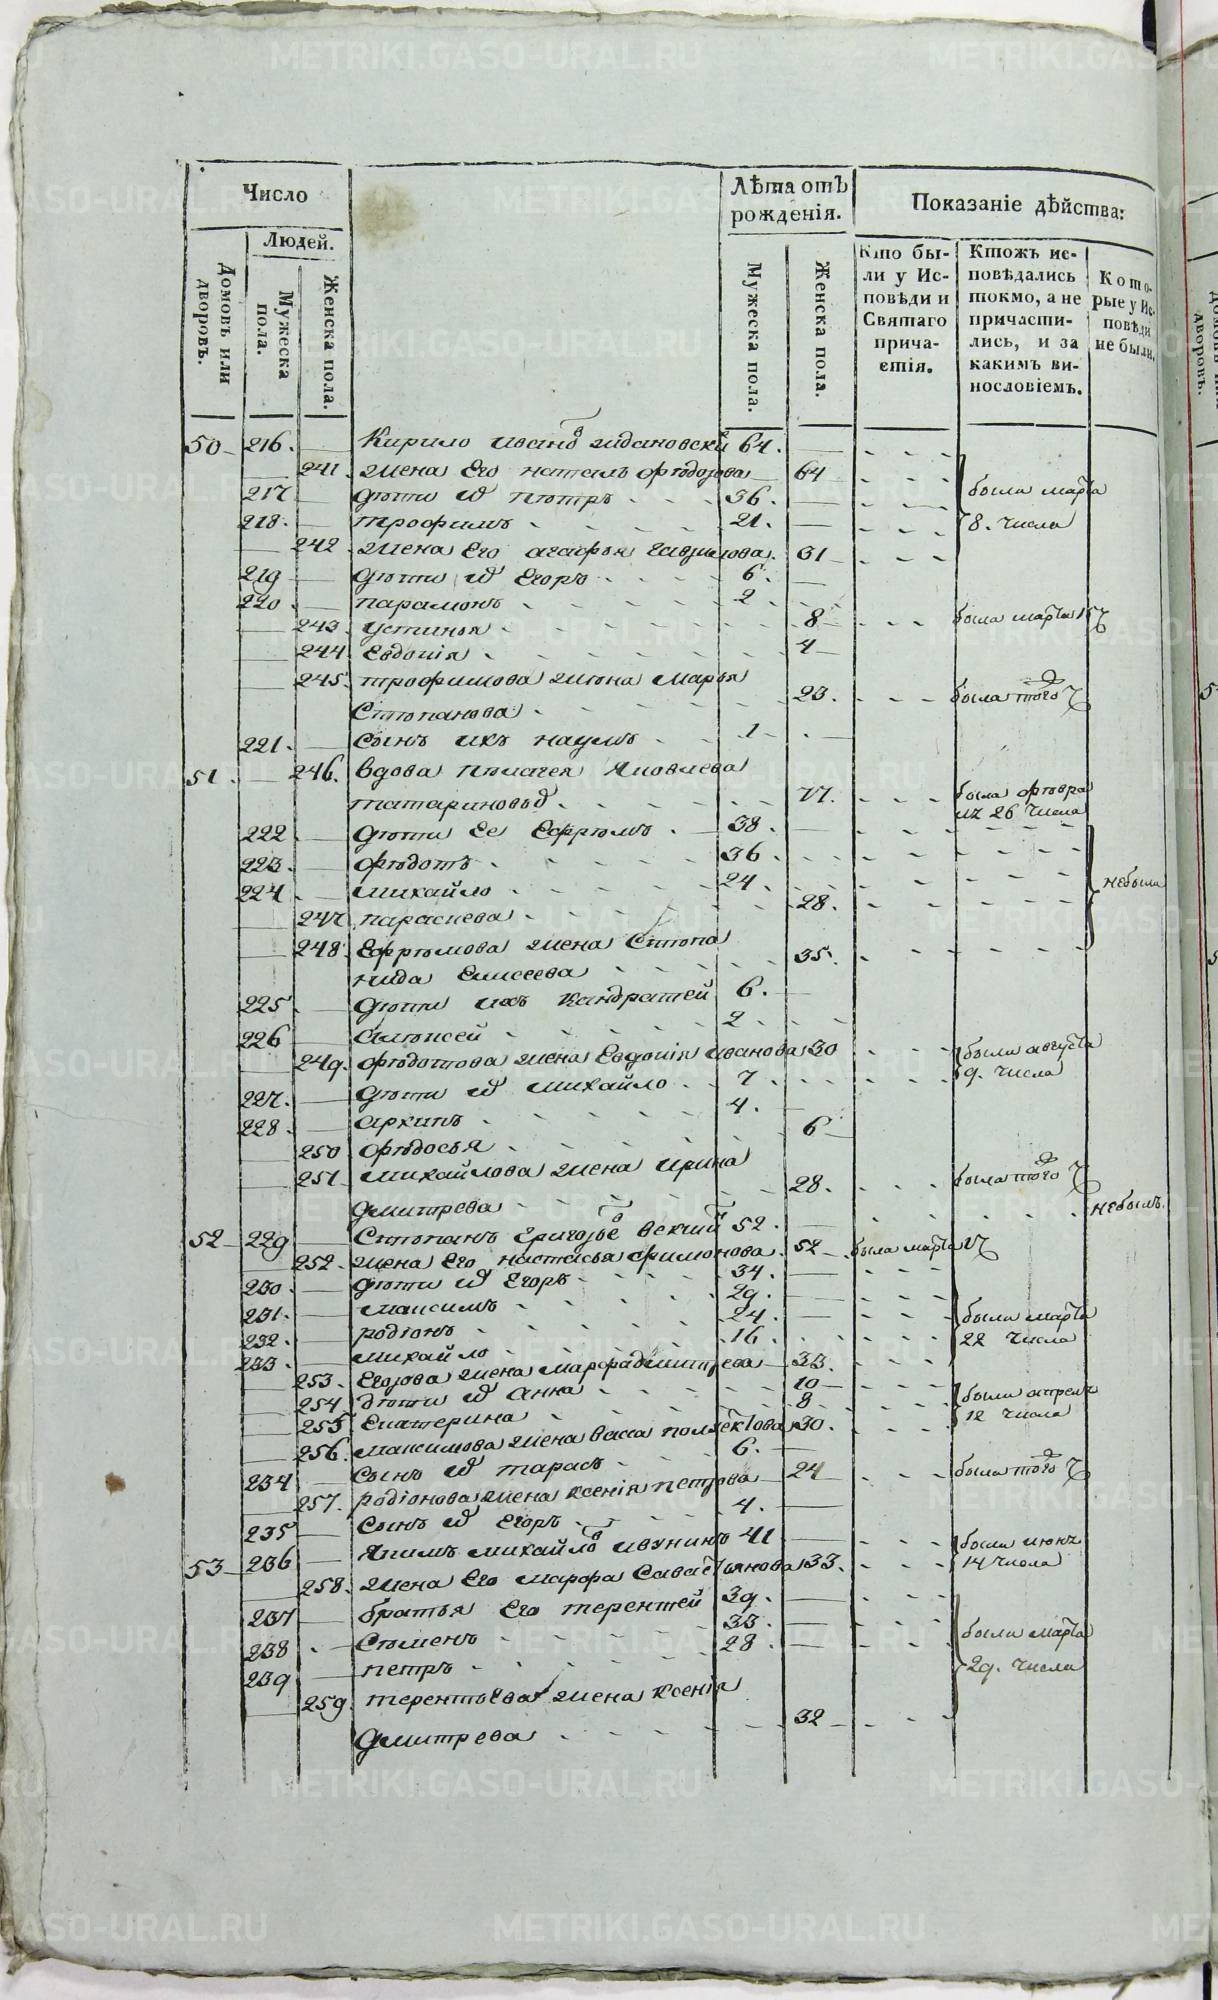 METRIKI.GASO-URAL.RU
Число
Лѣта отъ рожденія.
Показаніе дѣйства:
Людей.
Домовъ или дворовъ.
Мужеска пола.
Женска пола.
Мужеска пола.
Женска пола.
Кто бы-
ли у Ис-
повѣди и
Святаго
прича-
стія.
Ктожъ ис-
повѣдались
токмо, а не
причасти-
лись, и за
какимъ ви-
нословіемъ.
Кото-
рые у Ис-
повѣди
не были.
50 216. Кирило Иванов 64.
241. жена Его 64
217 дѣти Петръ 36. были марта
218. трофимъ 21. 8. числа
242. жена Его агафья 31
219 дѣти Егоръ 6.
220 парамонъ 2
243. устинья 8 была марта
244. Евдокія 4
245. трофимова жена марья
Степанова 23. была того
221. сынъ ихъ наумъ 1
51. 246. вдова пелагея Яковлева
77. была февра
26 числа
222 дѣти Ее Ефремъ 38.
223. федотъ 36.
224 михайло 24. небыли
247 параскева 28.
248. Ефремова жена Степа
нида Елисеева 35.
225. дѣти ихъ кандратей 6.
226 алексей 2
249. федотова жена Евдокія иванова 30 были августа
227. дѣти михайло 7 9. числа
228. архипъ 4.
250 федосья 6
251 михайлова жена ирина
дмитрева 28. была того
52 229 Степанъ 52. небылъ
252. жена Его настасья филимонова 52 была марта
230. дѣти Егоръ 34.
231. максимъ 29. были марта
232. родіонъ 24. 22 числа
233. михайло 16
253. Егорова жена марфа дмитрева 33.
254 дѣти анна 10 были апреля
255 Екатерина 8 12 числа
256. максимова жена васса 30.
234 сынъ тарасъ 6. была того
257. родіонова жена ксенія петрова 24
235 сынъ Егоръ 4.
53 236 михайлов 41 были июня
258. жена Его марфа 33. 14 числа
237 братья Его терентей 39.
238 Семенъ 33. были марта
239 петръ 28. 29. числа
259 терентьева жена ксенія
дмитрева 32